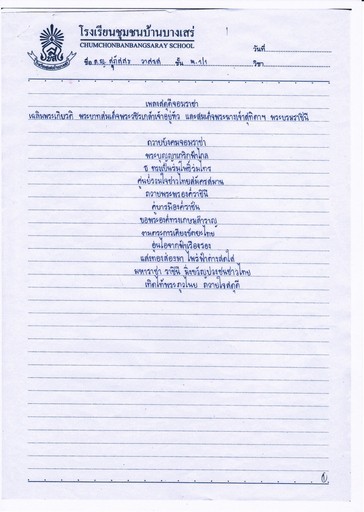 1
โรงเรียนชุมชนบ้านบางเสร่
CHUMCHONBANBANGSARAY SCHOOL
วันที่
ชื่อ ด.ญ. ชั้น ม.๖/๖ วิชา
เพลงสดุดีจอมราชา
เฉลิมพระเกียรติ พระบาทสมเด็จพระวชิรเกล้าเจ้าอยู่หัว และสมเด็จพระนางเจ้าสุทิดาฯ พระบรมราชินี
ถวายบังคมจอมราชา
พระบุญญาเกริกฟ้าไกล
ธ ทรงเป็นร่มโพธิ์ร่มไทร
ศูนย์รวมใจชาวไทยสมัครสมาน
ถวายพระพรองค์ราชินี
คู่บารมีองค์ราชัน
ขอพระองค์ทรงเกษมสำราญ
งามตระการเคียงขัตติยะไทย
อุ่นไอจากฟ้าเรืองรอง
แสงทองส่องมา ไพร่ฟ้าต่างสดใส
มหาราชา ราชินี มิ่งขวัญประชาชาวไทย
เทิดไท้พระภูวไนย ถวายใจสดุดี